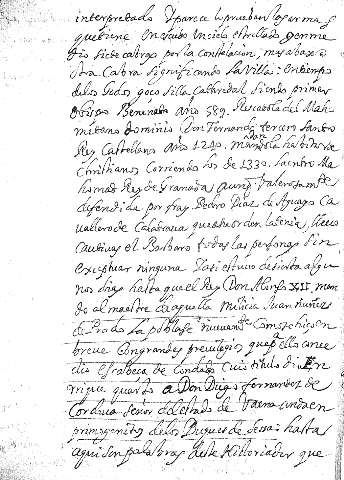 interpretado Y parece lo prueban las armas
que tiene en escudo un cielo estrellado y en me
dio siete cabras por la constelacion, mas abaxo
otra Cabra significando la Villa: en tiempo
de los Godos goço silla Cathedral siendo primer
obispo año 589. Rescatola del Mah
metano dominio Don Fernando tercero santo
Rey Castellano año 1240. mandola habitar de
christianos Corriendo los de 1330. la entro Ma
homad Rey de Granada aunq valerosamte
defendida por fray Pedro Diaz de Aguayo Ca
uallero de Calatraua que esta orden la tenia, lleuo
cautiuas el Barbaro todas las personas sin
exceptuar ninguna Y assi estuuo desierta algu
nos dias hasta que el Rey Don Alonso XII man
do al maestre de aquella milicia Juan nuñez
de Prado la poblase nueuamte Como se hiço en
breue Con grandes preuilegios que pa ello conce
dio es cabeça de Condado Cuio titulo dio En
rrique quarto a Don Diego fernandez de
Cordoua señor del estado de Vaena anda en
primogenitos de los Duques de Sessa: hasta
aqui son palabras deste Historiador que